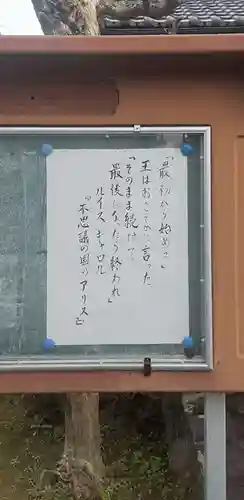 「最初から始めて」
王はおごそかに言った
「そのまま続けて
最後になったら終われ」
ルイス キャロル
『不思議の国のアリス』